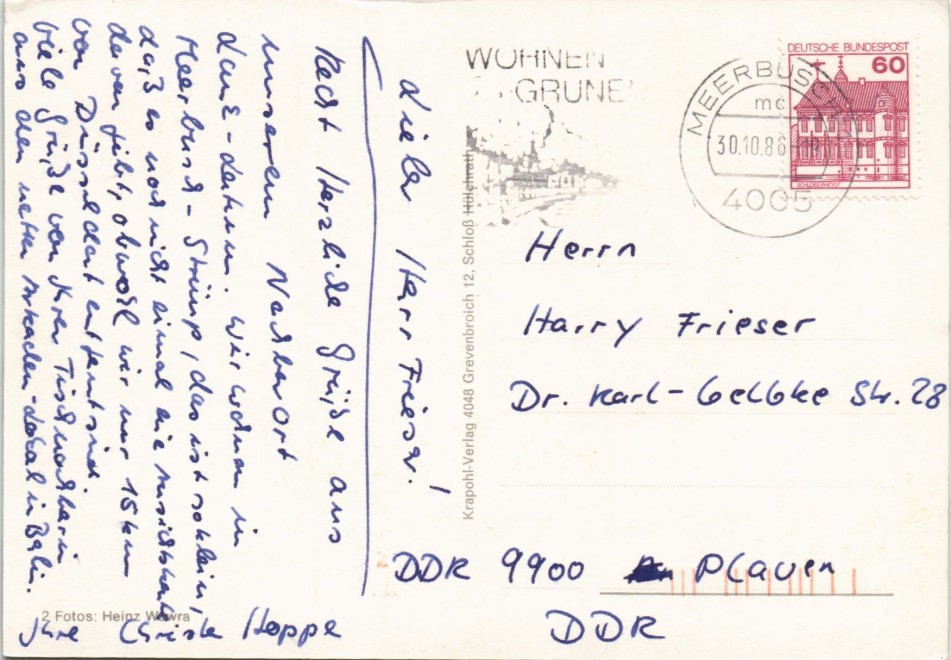 Lieber Herr Frieser!
Recht herzliche Grüße aus
unserem Nachbarort
Lank-Latum. Wir wohnen in
Meerbusch-Strümp, das ist so klein,
daß es noch nicht einmal eine Ansichtskarte
davon gibt, obwohl wir nur 15 km
von Düsseldorf entfernt sind.
Viele Grüße von Ihrer Tischnachbarin
aus dem netten Lokal in Berlin.
Ihre Christa Hoppe
2 Fotos: Heinz Wawra
Krapohl-Verlag 4048 Grevenbroich 12, Schloß Hülchrath
WOHNEN
GRÜNEN
MEERBUSCH
mc
30.10.86
4005
DEUTSCHE BUNDESPOST
60
SCHLOSS RHEYDT
Herrn
Harry Frieser
Dr. Karl-Gelbke Str. 28
DDR 9900 Plauen
DDR